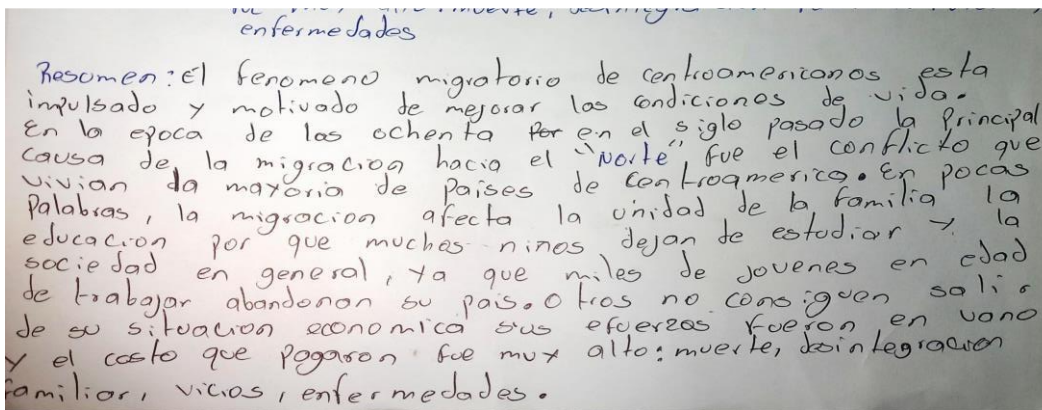 enfermedades
Resumen: El fenomeno migratorio de centroamericanos esta
impulsado y motivado de mejorar las condiciones de vida.
En la epoca de las ochenta en el siglo pasado la Principal
causa de la migracion hacia el "Norte", fue el conflicto que
vivian la mayoria de paises de Centroamerica. En pocas
Palabras, la migracion afecta la unidad de la familia la
educacion por que muchos ninos dejan de estudiar y la
sociedad en general, ya que miles de jovenes en edad
de trabajar abandonan su pais. Otros no consiguen salir
de su situacion economica sus efuerzos fueron en vano
y el costo que pagaron fue muy alto: muerte, desintegracion
familiar, vicios, enfermedades.